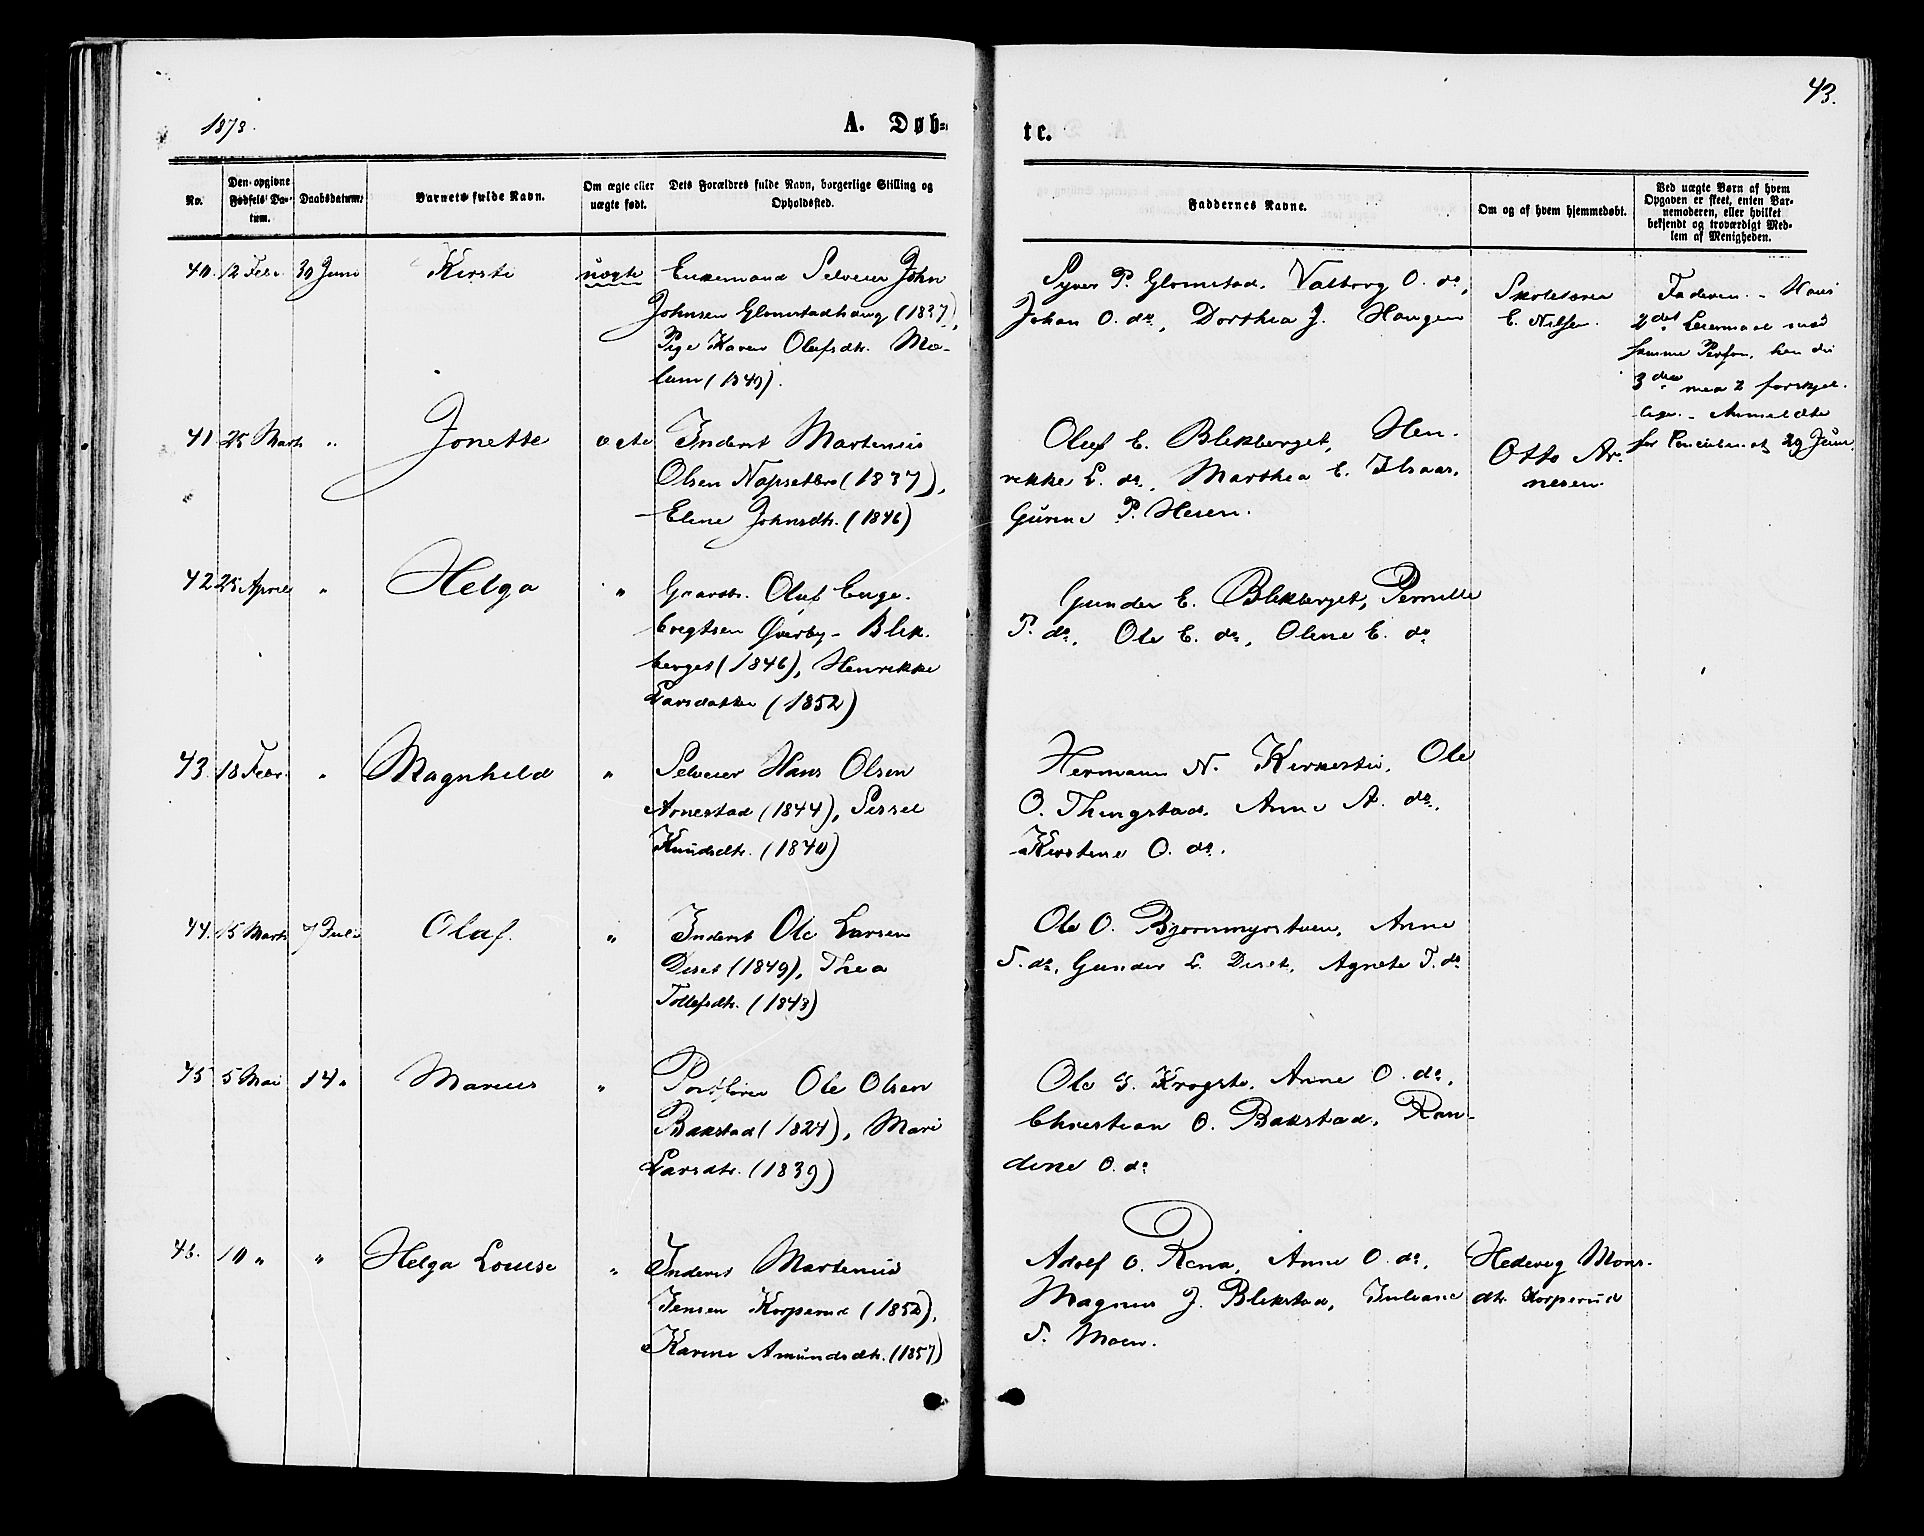 1878.
A. Døb-
te.
43.
No.
Den opgivne Fødsels Datum.
Daabsdatum.
Barnets fulde Navn.
Om ægte eller uægte født.
Dets Forældres fulde Navn, borgerlige Stilling og Opholdssted.
Faddernes Navne.
Om og af hvem hjemmedøbt.
Ved uægte Børn af hvem Opgaven er skeet, enten Barnemoderen, eller hvilket bekjendt og troværdigt Medlem af Menigheden.
40. 12 Febr. 30 Juni Kirsti uægte
Enkemand Selveier John
Johnsen Glomstadhaug (1837),
Pige Karen Olafsdtr. Mo-
lum (1849).
Syver P. Glomstad, Valborg O. do,
Johan O. do, Dorthea J. Haugen
Skolelærer
E. Nilsen.
Faderen. – Hans
2det Leiermaal med
samme Person, hendes
3die med 2 forskjel-
lige. – Anmeldte
29 Juni
41 25 Marts " Jonette ægte
Inderst Martenius
Olsen Napsetbro (1837),
Eline Johnsdtr. (1846)
Oluf E. Blekberget, Hen-
rikke L. do, Marthea E. Ilsaas,
Gunne P. Hesen.
Otto Ar-
nesen.
42 25 April " Helga "
Gaardbr. Oluf Enge-
bregtsen Øverby-Blek-
berget (1846), Henrikke
Larsdatter (1852)
Gunder E. Blekberget, Pernille
P. do, Ole E. do, Oline E. do
43. 18 Febr. " Magnhild "
Selveier Hans Olsen
Arnestad (1844), Sissel
Knudsdtr. (1840)
Hermann N. Kirkesti, Ole
O. Thingstad, Anne A. do,
Kirstine O. do.
44. 15 Marts 7 Juli Olaf. "
Inderst Ole Larsen
Deset (1849), Thea
Tollefsdtr. (1843)
Ole O. Bjørnmyrstuen, Anne
T. do, Gunder L. Deset, Agnete T. do
45 5 Mai 14 " Marius "
Ole Olsen
Bakstad (1824), Mari
Larsdtr. (1839)
Ole G. Krogsti, Anne O. do,
Christian O. Bakstad, Ran-
dine O. do
46. 10 " " Helga Louise "
Inderst Martenius
Jensen Korperud (1852),
Karine Amundsdtr. (1857)
Adolf O. Rena, Anne O. do,
Magnus J. Blikstad, Juliane
S. Moen.
Hedevig Mons-
dtr. Korperud